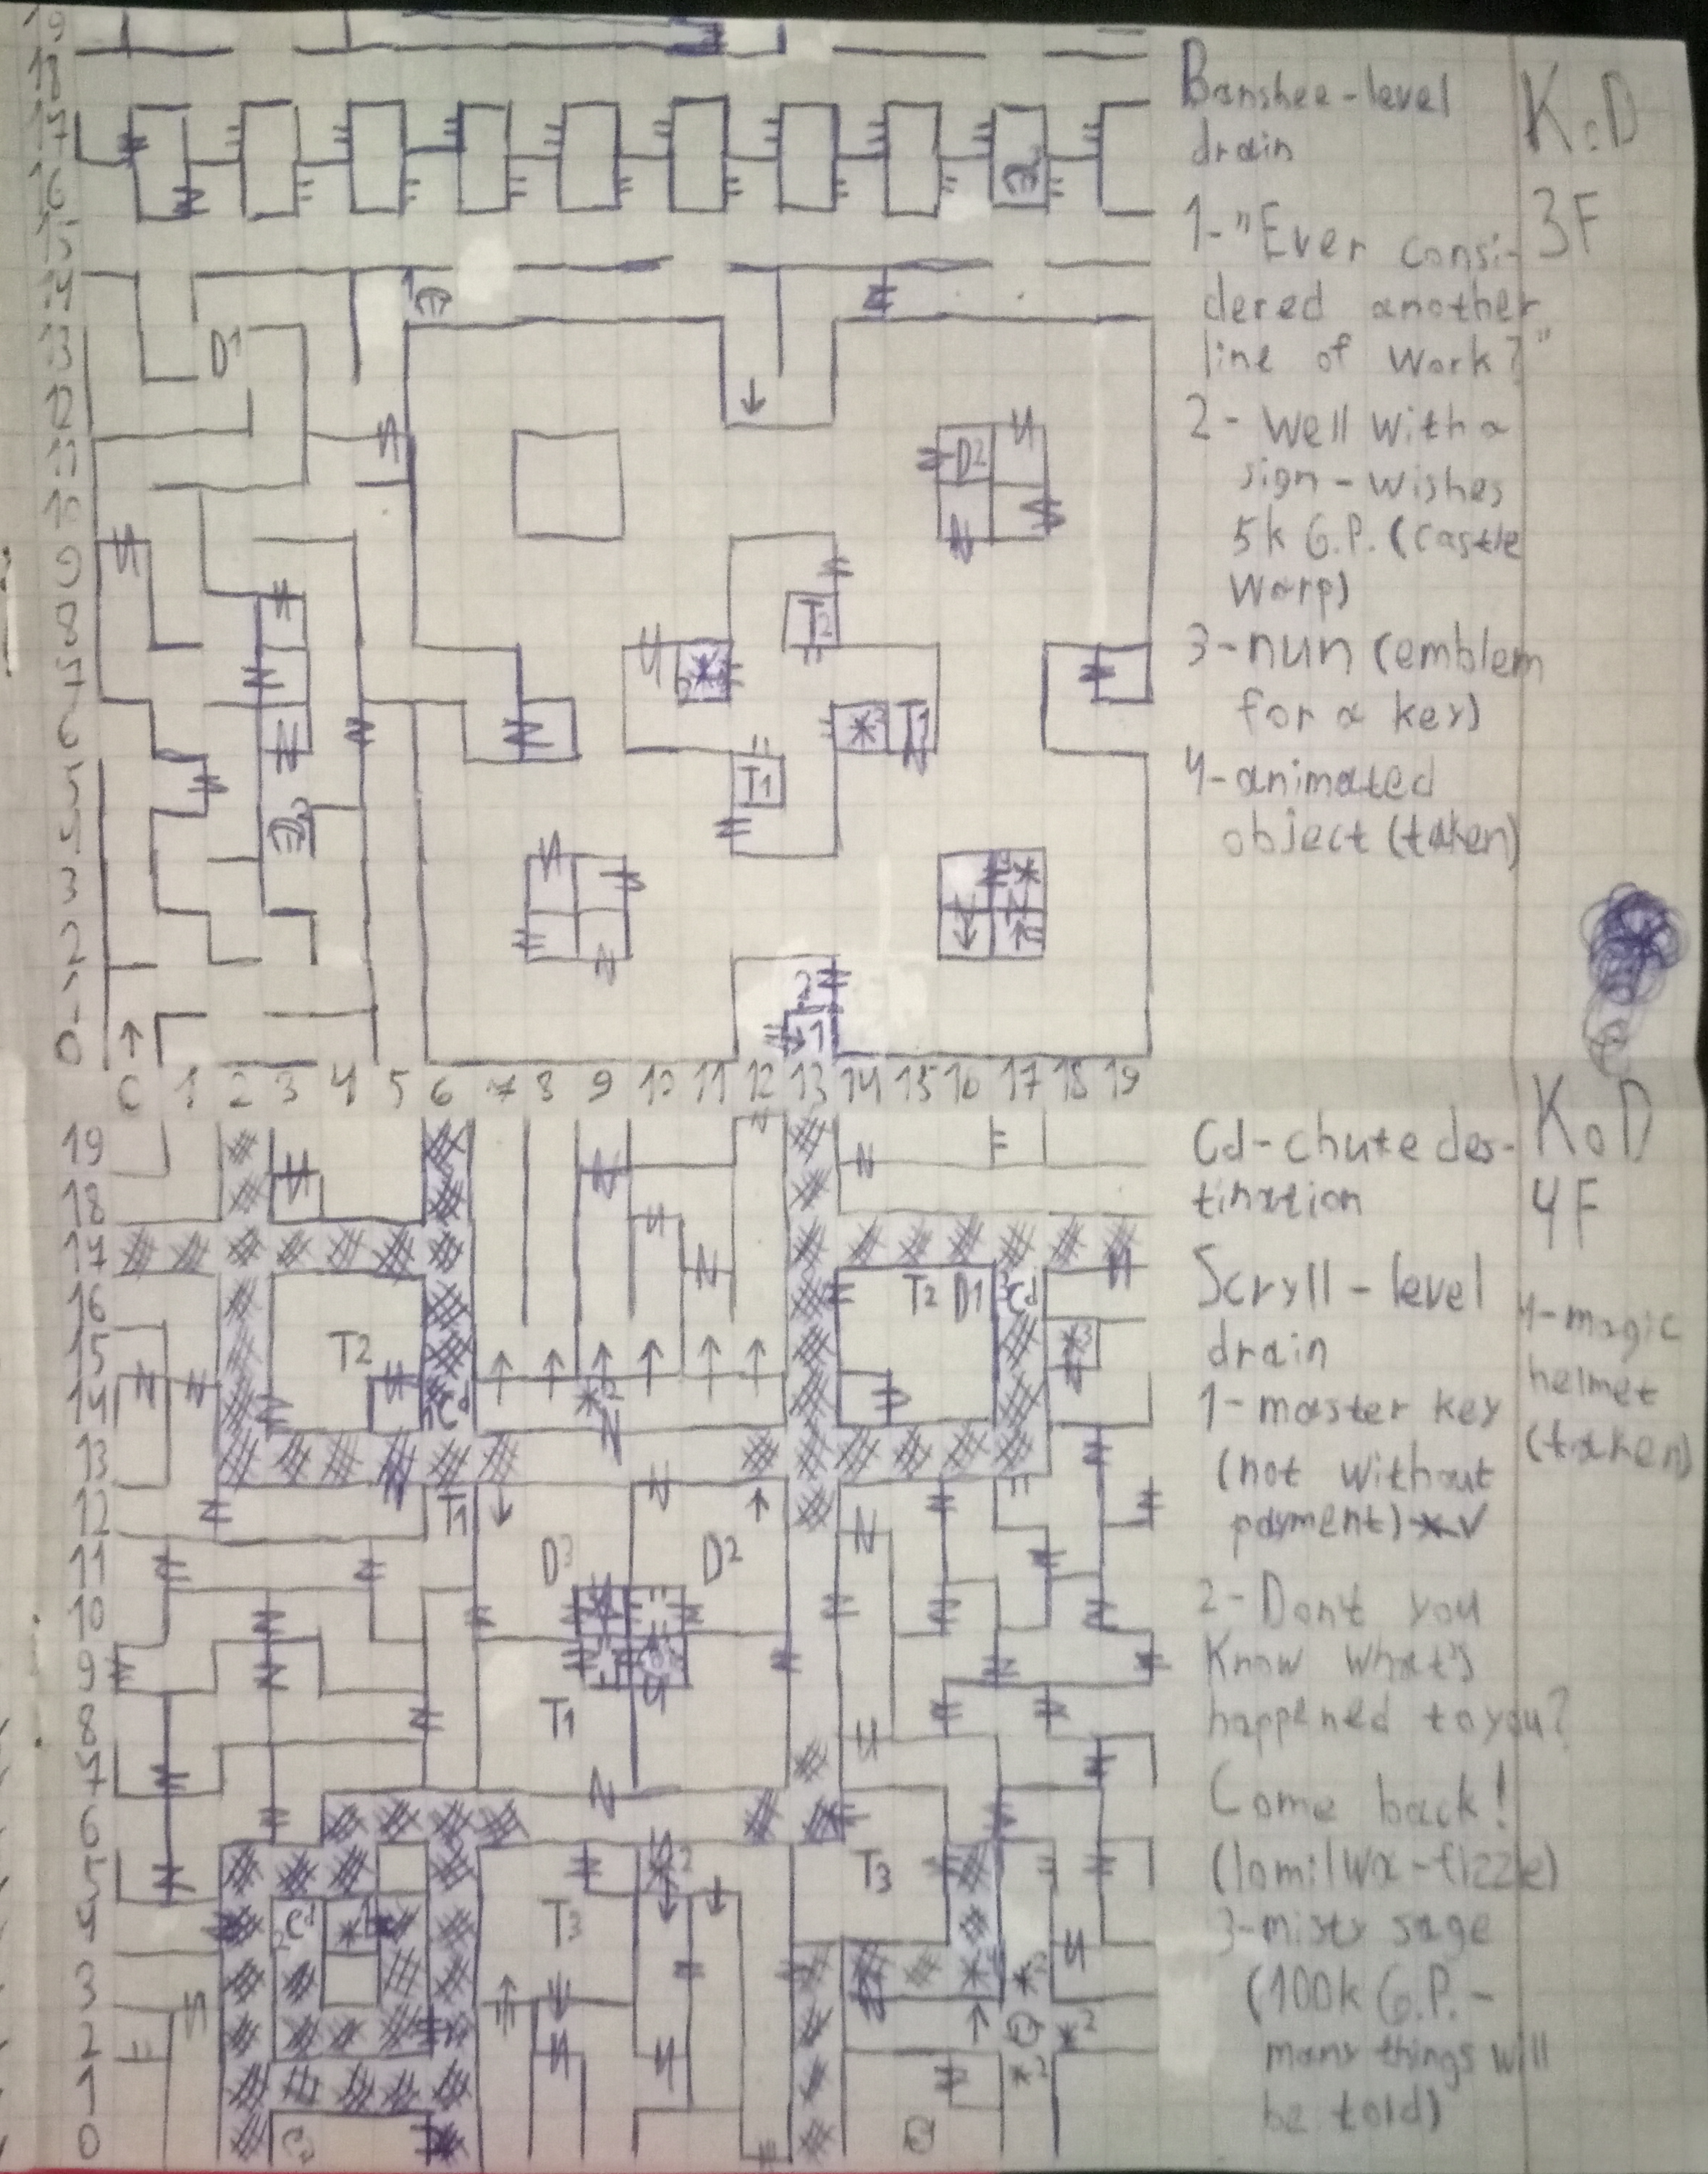 19
18
17
16
15
14
13
12
11
10
9
8
7
6
5
4
3
2
1
0
0 1 2 3 4 5 6 7 8 9 10 11 12 13 14 15 16 17 18 19
1
D1
D2
T2
T1
T1
2
1
Banshee-level
drain
1-"Ever consi-
dered another
line of work?"
2- Well with a
sign - wishes
5k G.P. (castle
warp)
3-nun (emblem
for a key)
4-animated
object (taken)
K.D
3F
19
18
17
16
15
14
13
12
11
10
9
8
7
6
5
4
3
2
1
0
T2
T2 D1
Cd
Cd
T1
D3
D2
T1
T3
T3
Cd
Cd-chute des-
tination
Scryll-level
drain
1-master key
(not without
payment)
2-Don't you
know what's
happened to you?
Come back!
(lomilwa-fizzle)
3-misty sage
(100k G.P.-
many things will
be told)
K.D
4F
4-magic
helmet
(taken)